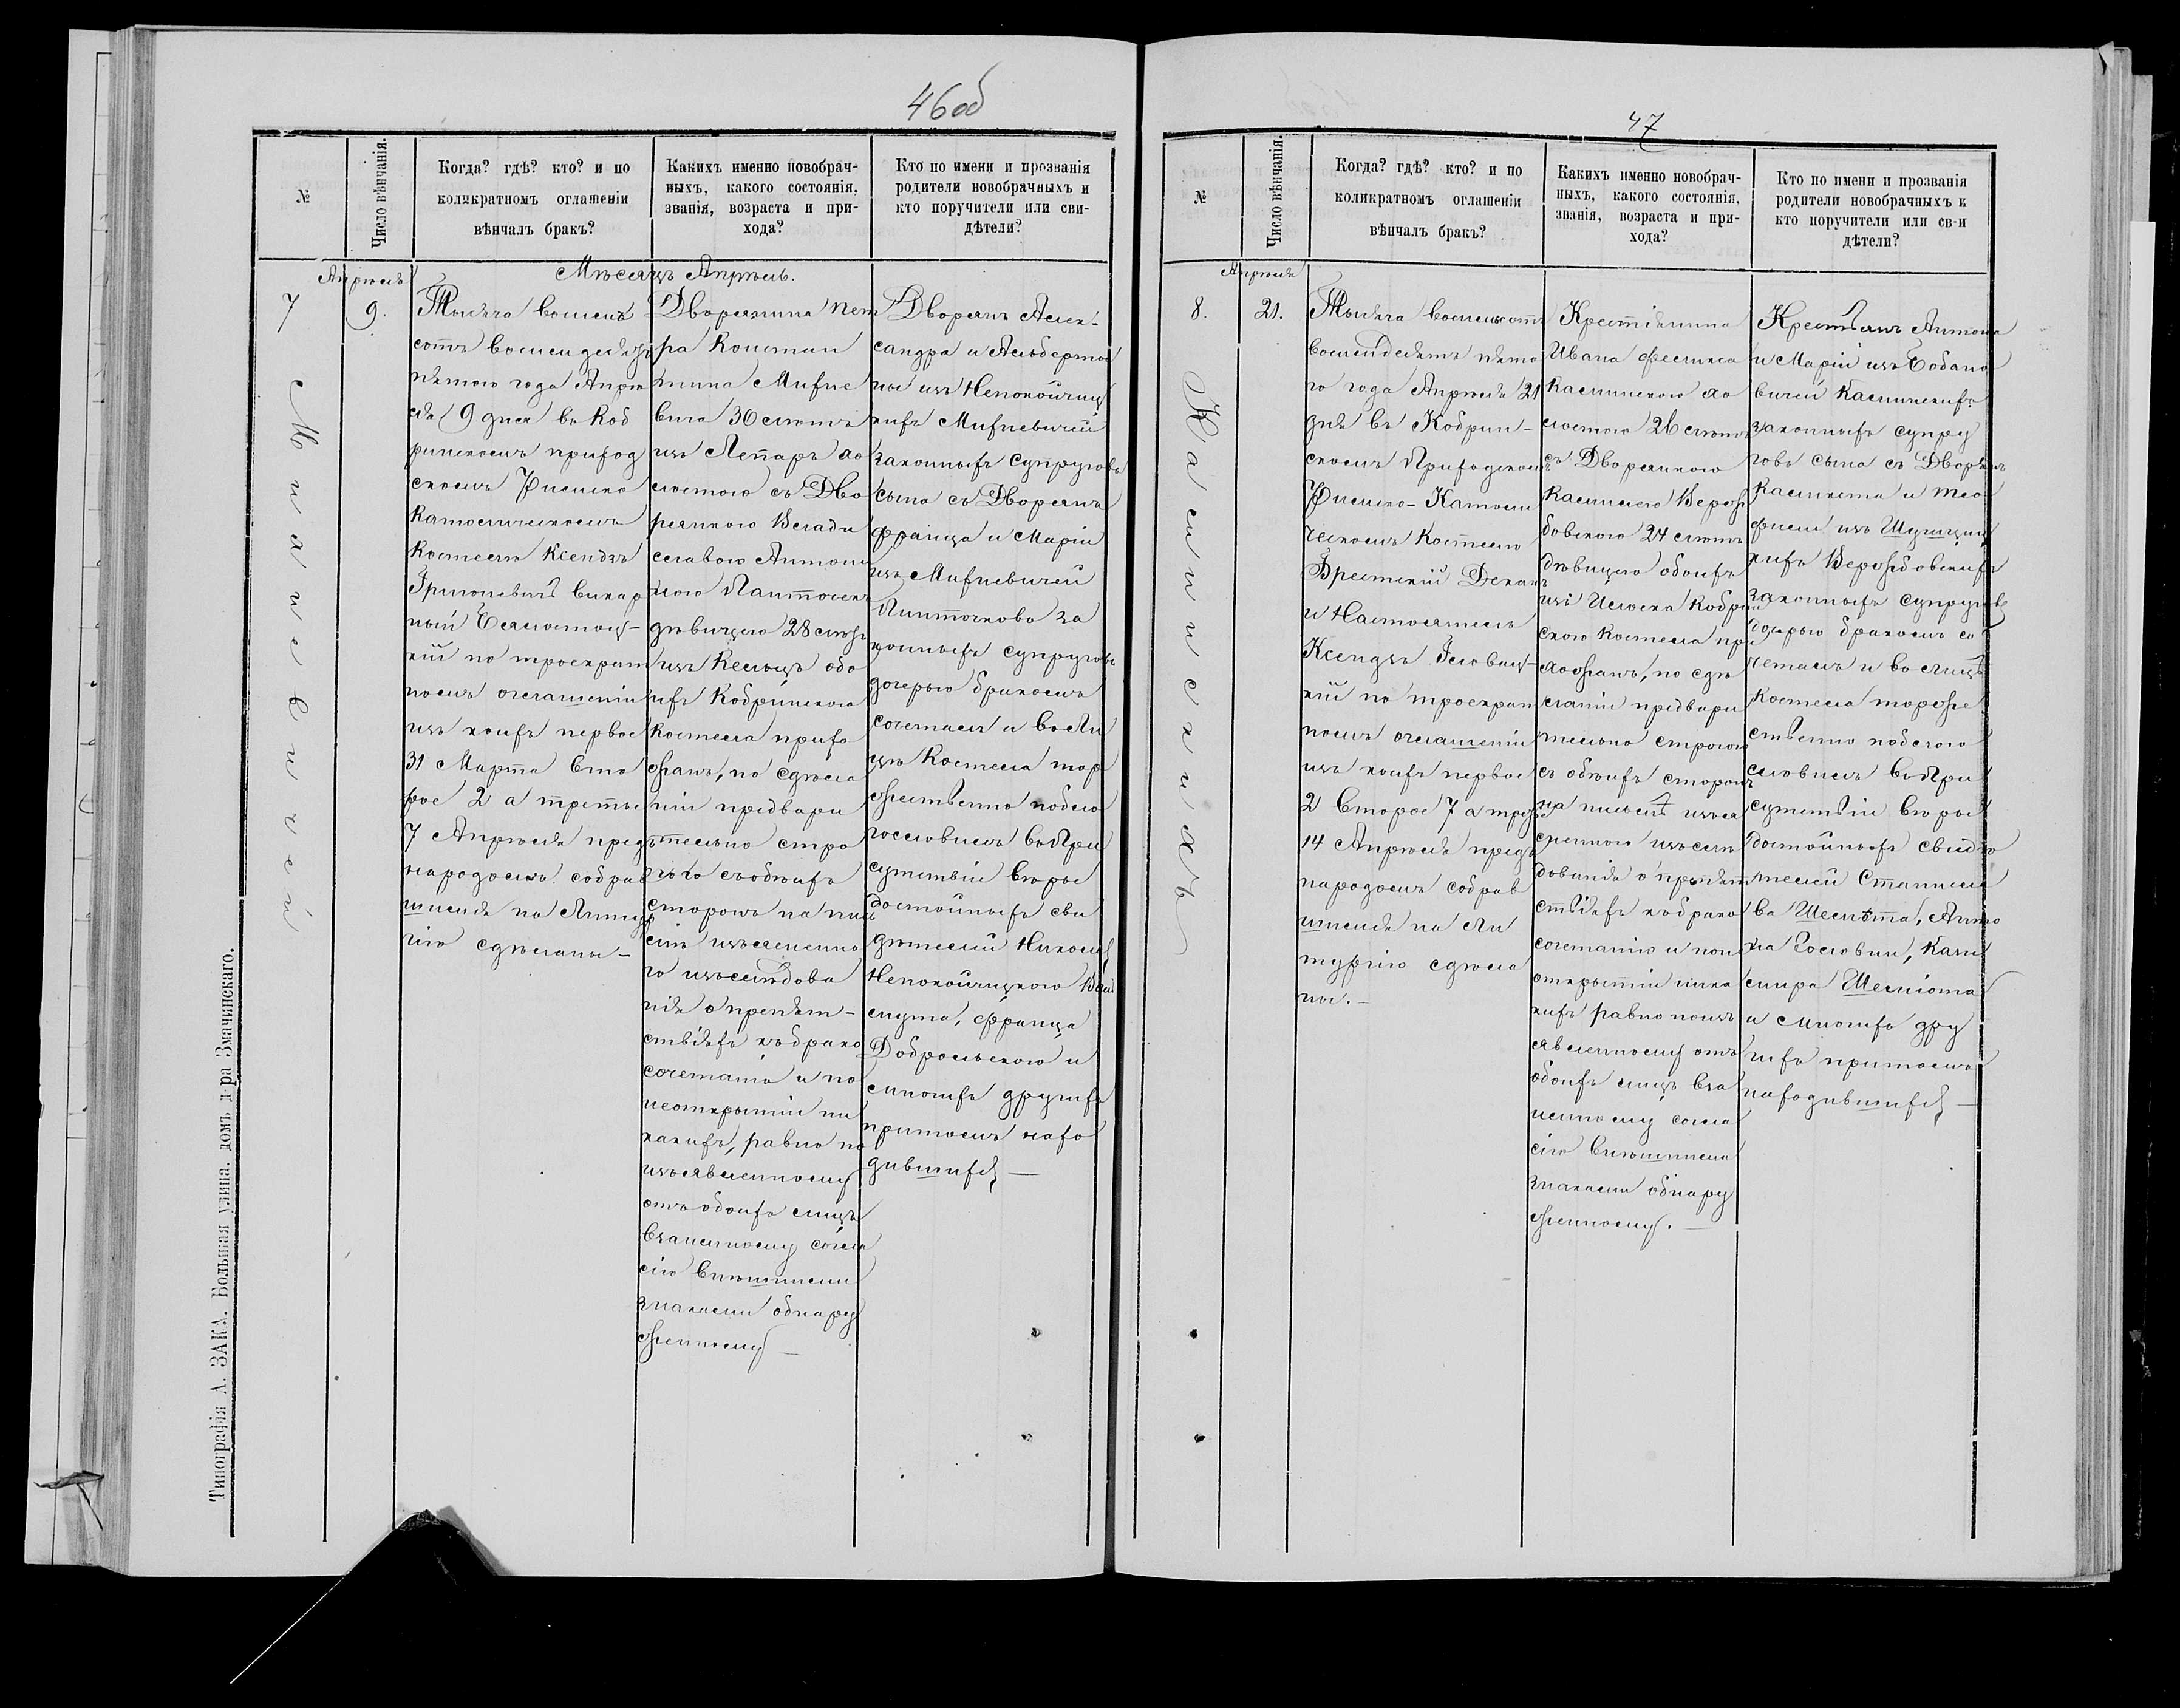 46 об
№
Число вѣнчанія.
Когда? гдѣ? кто? и по
коликратномъ оглашеніи
вѣнчалъ бракъ?
Какихъ именно новобрач-
ныхъ, какого состоянія,
званія, возраста и при-
хода?
Кто по имени и прозванія
родители новобрачныхъ и
кто поручители или сви-
дѣтели?
Апрѣль
Мѣсяцъ Апрѣль.
7
9.
Михневичей
Тысяча восемь
сотъ восемдесятъ
пятого года Апрѣ
ля 9 дня въ Коб
ринскомъ приход
скомъ Римско
Католическомъ
Костелѣ Ксендзъ
викар
ный
кій по троекрат
номъ оглашеніи
изъ коихъ первое
31 Марта вто
рое 2 а третье
7 Апрѣля предъ
народомъ собрав
шимся на Литур
гію сдѣланы —
Дворянина Пет
ра Констан
тина Михне
вича 36 лѣтъ
изъ Лепаръ хо
лостого съ Дво
рянкою Влади
славою Антони
ною
дѣвицею 28 лѣтъ
изъ обо
ихъ Кобринского
Костела прихо
жанъ, по сдѣла
ніи предвари
тельно стро
гого съ обѣихъ
сторонъ на пись
мѣ изъясненно
го изслѣдова
нія о препят-
ствіяхъ къ брако
сочетанію и по
неоткрытіи ни
какихъ, равно по
изъявленному
отъ обоихъ лицъ
взаимному согла
сію внѣшними
знаками обнару
женному —
Дворянъ Алек-
сандра и Альберти
ны изъ Непокойчиц
кихъ Михневичей
законныхъ супруговъ
сына съ Дворянъ
Франца и Маріи
изъ Михневичей
за
конныхъ супруговъ
дочерью бракомъ
сочеталъ и въ Ли
цѣ Костела тор
жественно побла
гословилъ въ при
сутствіи вѣро
достойныхъ сви
дѣтелей Николая
Непокойчицкого
Франца
Добровольского и
многихъ другихъ
притомъ нахо
дившихся —
Типографія А. ЗАКА. Большая улица. домъ д-ра Змачинскаго.
47
№
Число вѣнчанія.
Когда? гдѣ? кто? и по
коликратномъ оглашеніи
вѣнчалъ бракъ?
Какихъ именно новобрач-
ныхъ, какого состоянія,
званія, возраста и при-
хода?
Кто по имени и прозванія
родители новобрачныхъ и
кто поручители или св-и
дѣтели?
Апрѣля
8.
21.
Калинскихъ
Тысяча восемьсотъ
восемдесятъ пято
го года Апрѣля 21
дня въ Кобрин-
скомъ Приходскомъ
Римско-Католи
ческомъ Костелѣ
Брестскій Деканъ
и Настоятель
Ксендзъ
кій по троекрат
номъ оглашеніи
изъ коихъ первое
2 второе 7 а третье
14 Апрѣля предъ
народомъ собрав
шимся на Ли
тургію сдѣла
ны. —
Крестіянина
Ивана Феликса
Калинского хо
лостого 26 лѣтъ
съ Дворянкою
24 лѣтъ
дѣвицею обоихъ
изъ Кобрин
ского Костела при
хожанъ, по сдѣ
ланіи предвари
тельно строгого
съ обѣихъ сторонъ
на письмѣ изъяс
ненного изслѣ
дованія о препят
ствіяхъ къ брако
сочетанію и по не
открытіи ника
кихъ равно по изъ
явленному отъ
обоихъ лицъ вза
имному согла
сію внѣшними
знаками обнару
женному. —
Крестьянъ Антона
и Маріи изъ
Калинскихъ
законныхъ супру
говъ сына съ Дворянъ
и Тео
филіи изъ
кихъ
законныхъ супруговъ
дочерью бракомъ со
четалъ и въ лицѣ
Костела торже
ственно побла
гословилъ въ при
сутствіи вѣро
достойныхъ свидѣ
телей Станисла
ва Шелюта, Анто
на Гословки, Кази
мира Шелюта
и многихъ дру
гихъ притомъ
находившихся —